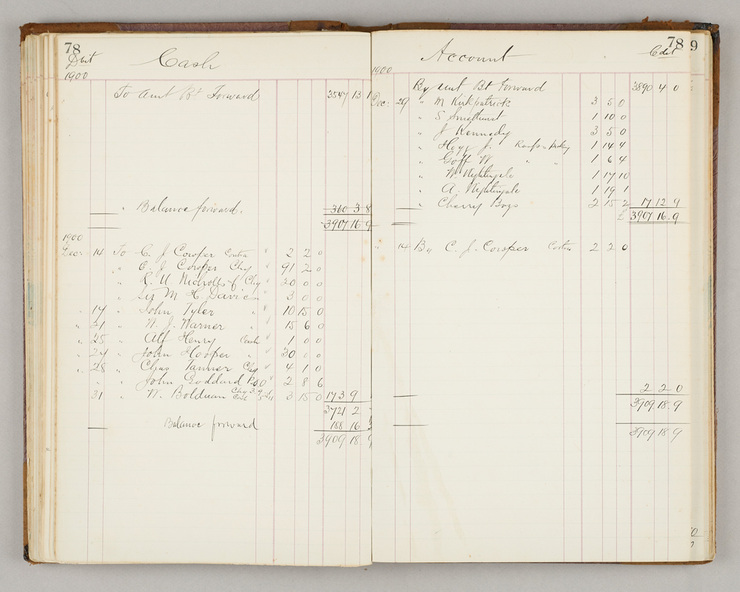 78
Cash
1900
To Amt Bt Forward 3547 13 1
" Balance forward. 360 3 8
3907 16 9
1900
Decr 14 To C. J. Cowper Contra " 2 2 0
" C. J. Cowper Chq " 91 2 0
" Chq " 20 0 0
" M H Davies " 3 0 0
" 17 " John Tyler " " 10 15 0
" 21 " W. J. Warner " " 15 6 0
" 25 " Alf Henry Cash " 1 0 0
" 27 " John Hooper " " 30 0 0
" 28 " Chas Tanner Chq " 4 1 0
" " John Goddard P.O.O " 2 8 6
31 " W. Boldman 3 15 0 173 9
3721 2
Balance forward 188 16
3909 18 9
78
Account
1900
By Amt Bt Forward 3890 4 0
Dec: 29 " M Kirkpatrick 3 5 0
" S Smethurst 1 10 0
" J Kennedy 3 5 0
" Hogg J. 1 14 4
" Goff W " " 1 6 4
" W. Nightingale 1 17 10
" A. Nightingale 1 19 1
" Cherry Boys 2 15 2 17 12 9
£ 3907 16 9
" 14 By C. J. Cowper Contra 2 2 0
2 2 0
3909 18 9
3909 18 9
9